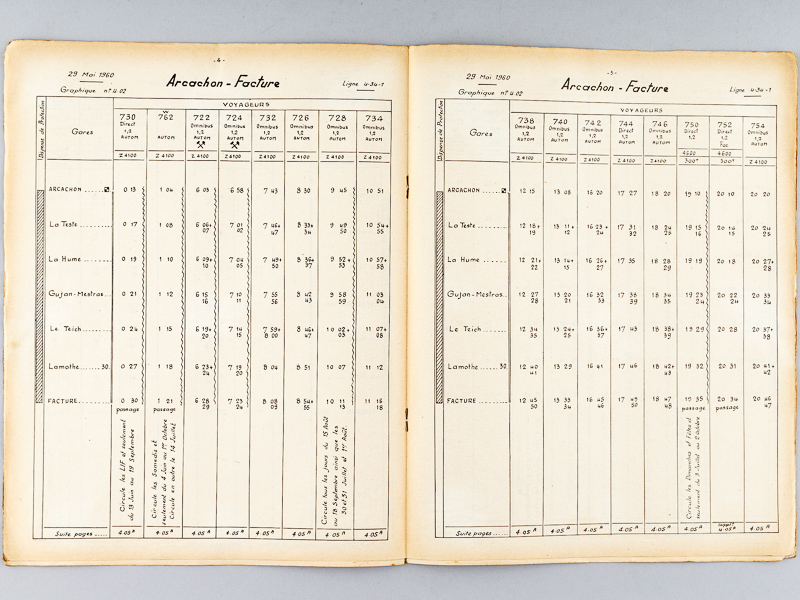 - 4 -
29 Mai 1960
Arcachon - Facture
Ligne 4-34-1
Graphique n° 4.02
VOYAGEURS
Dispense de Protection
Gares
730 762 722 724 732 726 728 734
Direct Omnibus Omnibus Omnibus Omnibus Omnibus Omnibus
1,2 1,2 1,2 1,2 1,2 1,2 1,2
Autom Autom Autom Autom Autom Autom Autom Autom
Z 4100 Z 4100 Z 4100 Z 4100 Z 4100 Z 4100 Z 4100 Z 4100
ARCACHON ...... 0 13 1 04 6 03 6 58 7 43 8 30 9 45 10 51
La Teste ........ 0 17 1 08 6 06+ 7 01 7 46+ 8 33+ 9 49 10 54+
07 02 47 34 50 55
La Hume ........ 0 19 1 10 6 09+ 7 04 7 49+ 8 36+ 9 52+ 10 57+
10 05 50 37 53 58
Gujan-Mestras.. 0 21 1 12 6 15 7 10 7 55 8 42 9 58 11 03
16 11 56 43 59 04
Le Teich ........ 0 24 1 15 6 19+ 7 14 7 59+ 8 46+ 10 02+ 11 07+
20 15 8 00 47 03 08
Lamothe ....... 30. 0 27 1 18 6 23+ 7 19 8 04 8 51 10 07 11 12
24 20
FACTURE ....... 0 30 1 21 6 28 7 23 8 08 8 54+ 10 11 11 16
passage passage 29 24 09 55 13 18
Circule les LIF et seulement
du 13 Juin au 19 Septembre
Circule les Samedis et
seulement du 4 Juin au 1er Octobre
Circule en outre le 14 Juillet
Circule tous les jours du 15 Août
au 18 Septembre ainsi que les
30 et 31 Juillet et 1er Août.
Suite pages ..... 4.05 A 4.05 A 4.05 A 4.05 A 4.05 A 4.05 A 4.05 A 4.05 A
- 5 -
29 Mai 1960
Arcachon - Facture
Ligne 4-34-1
Graphique n° 4.02
VOYAGEURS
Dispense de Protection
Gares
738 740 742 744 746 750 752 754
Omnibus Omnibus Omnibus Direct Omnibus Direct Omnibus Omnibus
1,2 1,2 1,2 1,2 1,2 1,2 1,2 1,2
Autom Autom Autom Autom Autom Fac Autom
Z 4100 Z 4100 Z 4100 Z 4100 Z 4100 4600 4600 Z 4100
300T 300T
ARCACHON ..... 12 15 13 08 16 20 17 27 18 20 19 10 20 10 20 20
La Teste ....... 12 18+ 13 11+ 16 23+ 17 31 18 24 19 15 20 14 20 24
19 12 24 32 25 16 15 25
La Hume ....... 12 21+ 13 14+ 16 26+ 17 35 18 28 19 19 20 18 20 27+
22 15 27 29 28
Gujan-Mestras.. 12 27 13 20 16 32 17 38 18 34 19 23 20 22 20 33
28 21 33 39 35 24 24 34
Le Teich ........ 12 34 13 24+ 16 36+ 17 43 18 38+ 19 29 20 28 20 37+
35 25 37 39 38
Lamothe ....... 30. 12 40 13 29 16 41 17 46 18 42+ 19 32 20 31 20 41+
41 43 42
FACTURE ....... 12 45 13 33 16 45 17 49 18 47 19 35 20 34 20 46
50 34 46 50 48 passage passage 47
Circule les Dimanches et Fêtes et
seulement du 3 Juillet au 2 Octobre
Suite pages ..... 4.05 A 4.05 A 4.05 A 4.05 A 4.05 A 4.05 A 4.05 A 4.05 A